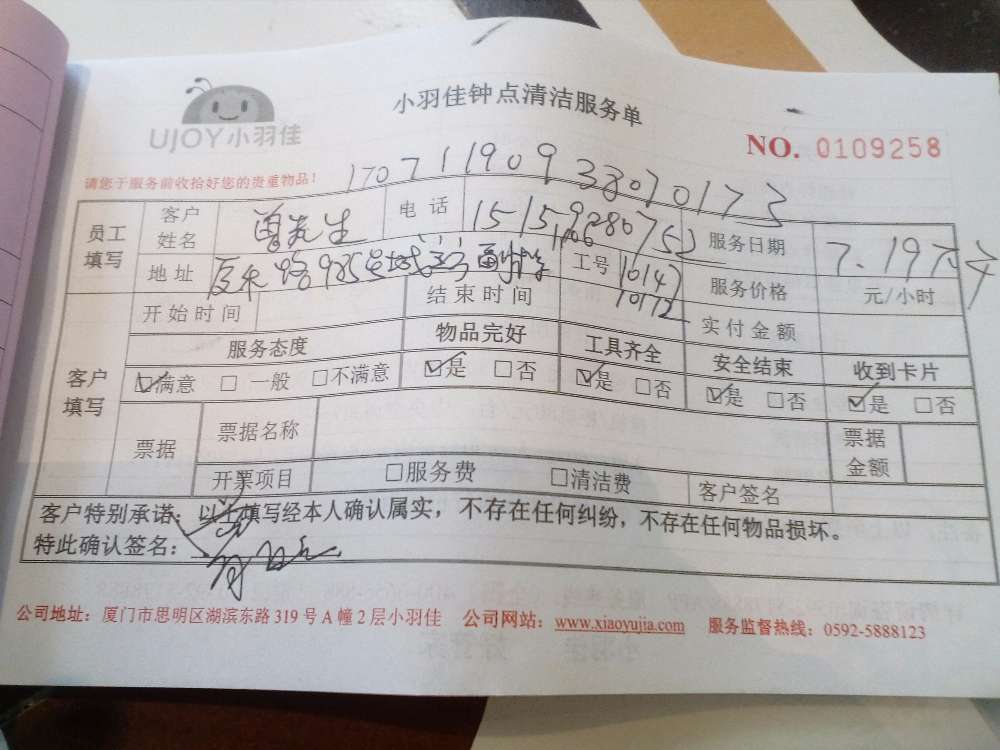 UJOY小羽佳
小羽佳钟点清洁服务单
NO. 0109258
请您于服务前收拾好您的贵重物品!
17071190933070173
员工填写 客户姓名 曾先生 电话 服务日期 7.19
地址 工号 10147 10172 服务价格 元/小时
开始时间 结束时间 实付金额
客户填写 服务态度 物品完好 工具齐全 安全结束 收到卡片
☑满意 □一般 □不满意 ☑是 □否 ☑是 □否 ☑是 □否 ☑是 □否
票据 票据名称 票据金额
开票项目 □服务费 □清洁费 客户签名
客户特别承诺:以上填写经本人确认属实,不存在任何纠纷,不存在任何物品损坏。
特此确认签名:
公司地址:厦门市思明区湖滨东路319号A幢2层小羽佳 公司网站:www.xiaoyujia.com 服务监督热线:0592-5888123